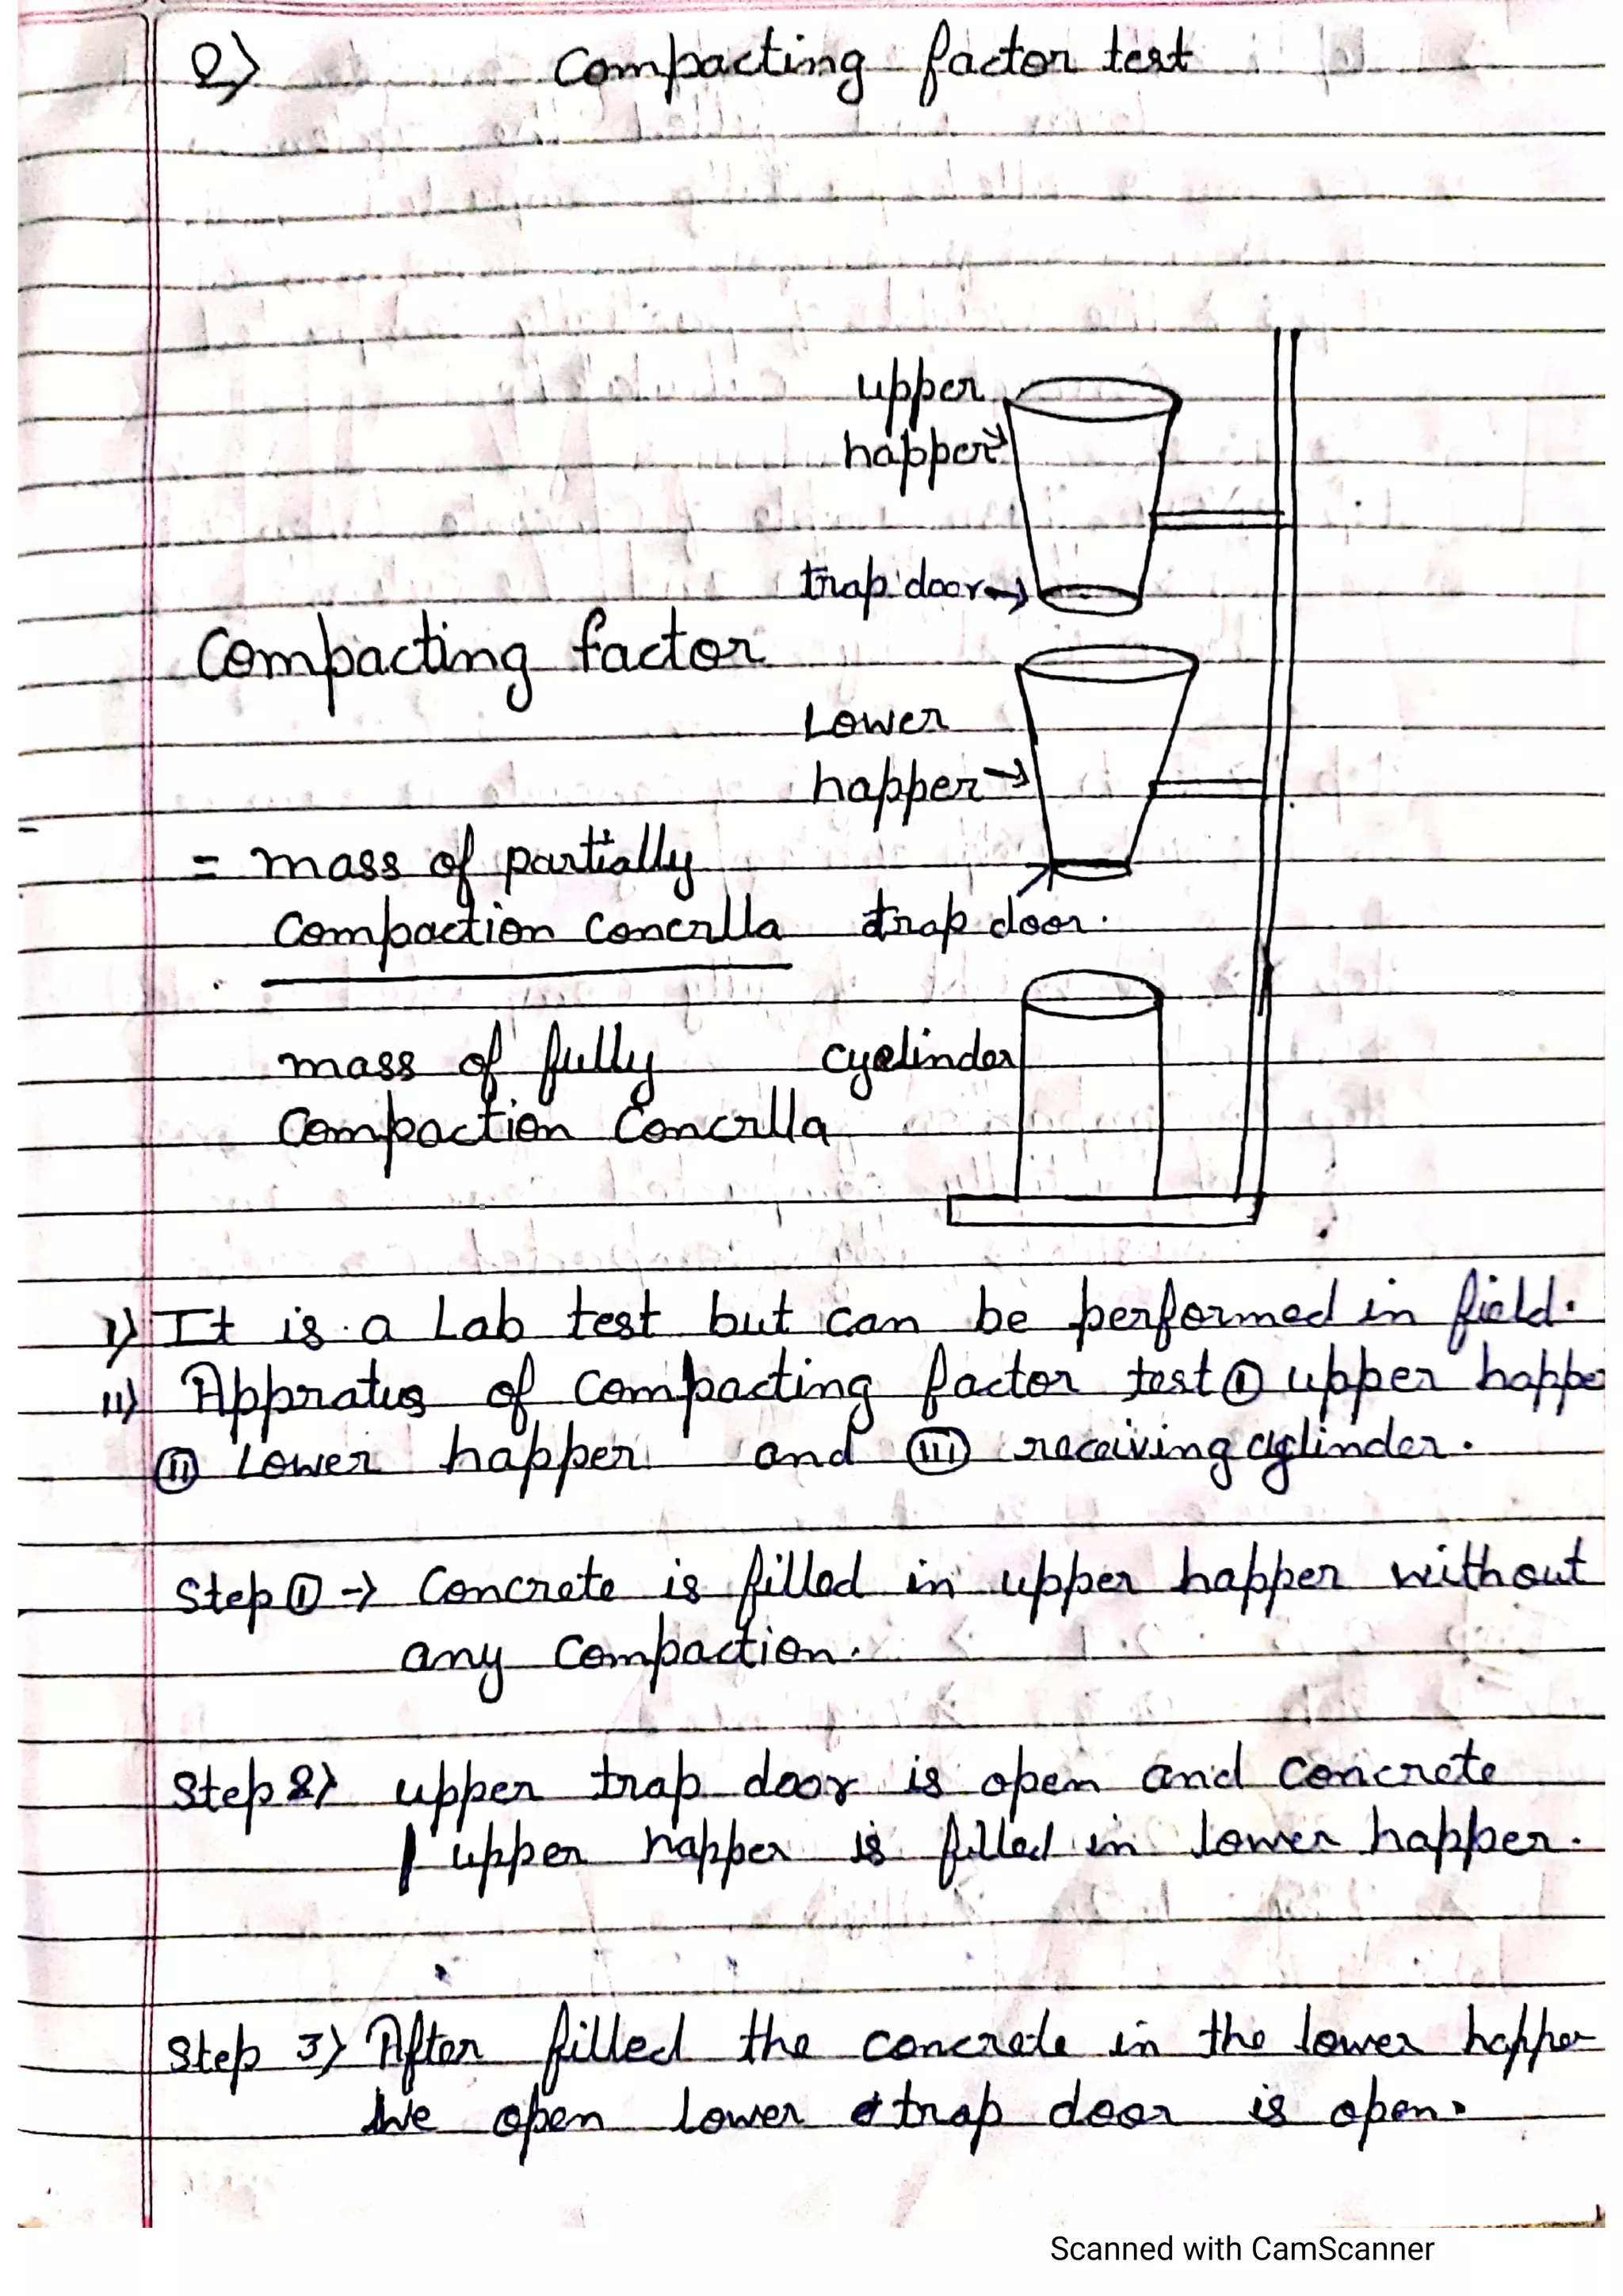 2) Compacting factor test
upper
happer
trap door
Compacting factor
Lower
happer
= mass of partially
Compaction Concrlla
trap door.
mass of fully
Compaction Concrlla
cyelinder
I) It is a Lab test but can be performed in field.
II) Appratus of Compacting factor test ① upper happe
② Lower happer and ③ receiving cylinder.
Step ① → Concrete is filled in upper happer without
any Compaction.
Step 2) upper trap door is open and Concrete
upper happer is filled in lower happer.
Step 3) After filled the concrete in the lower happer
We open lower trap door is open.
Scanned with CamScanner